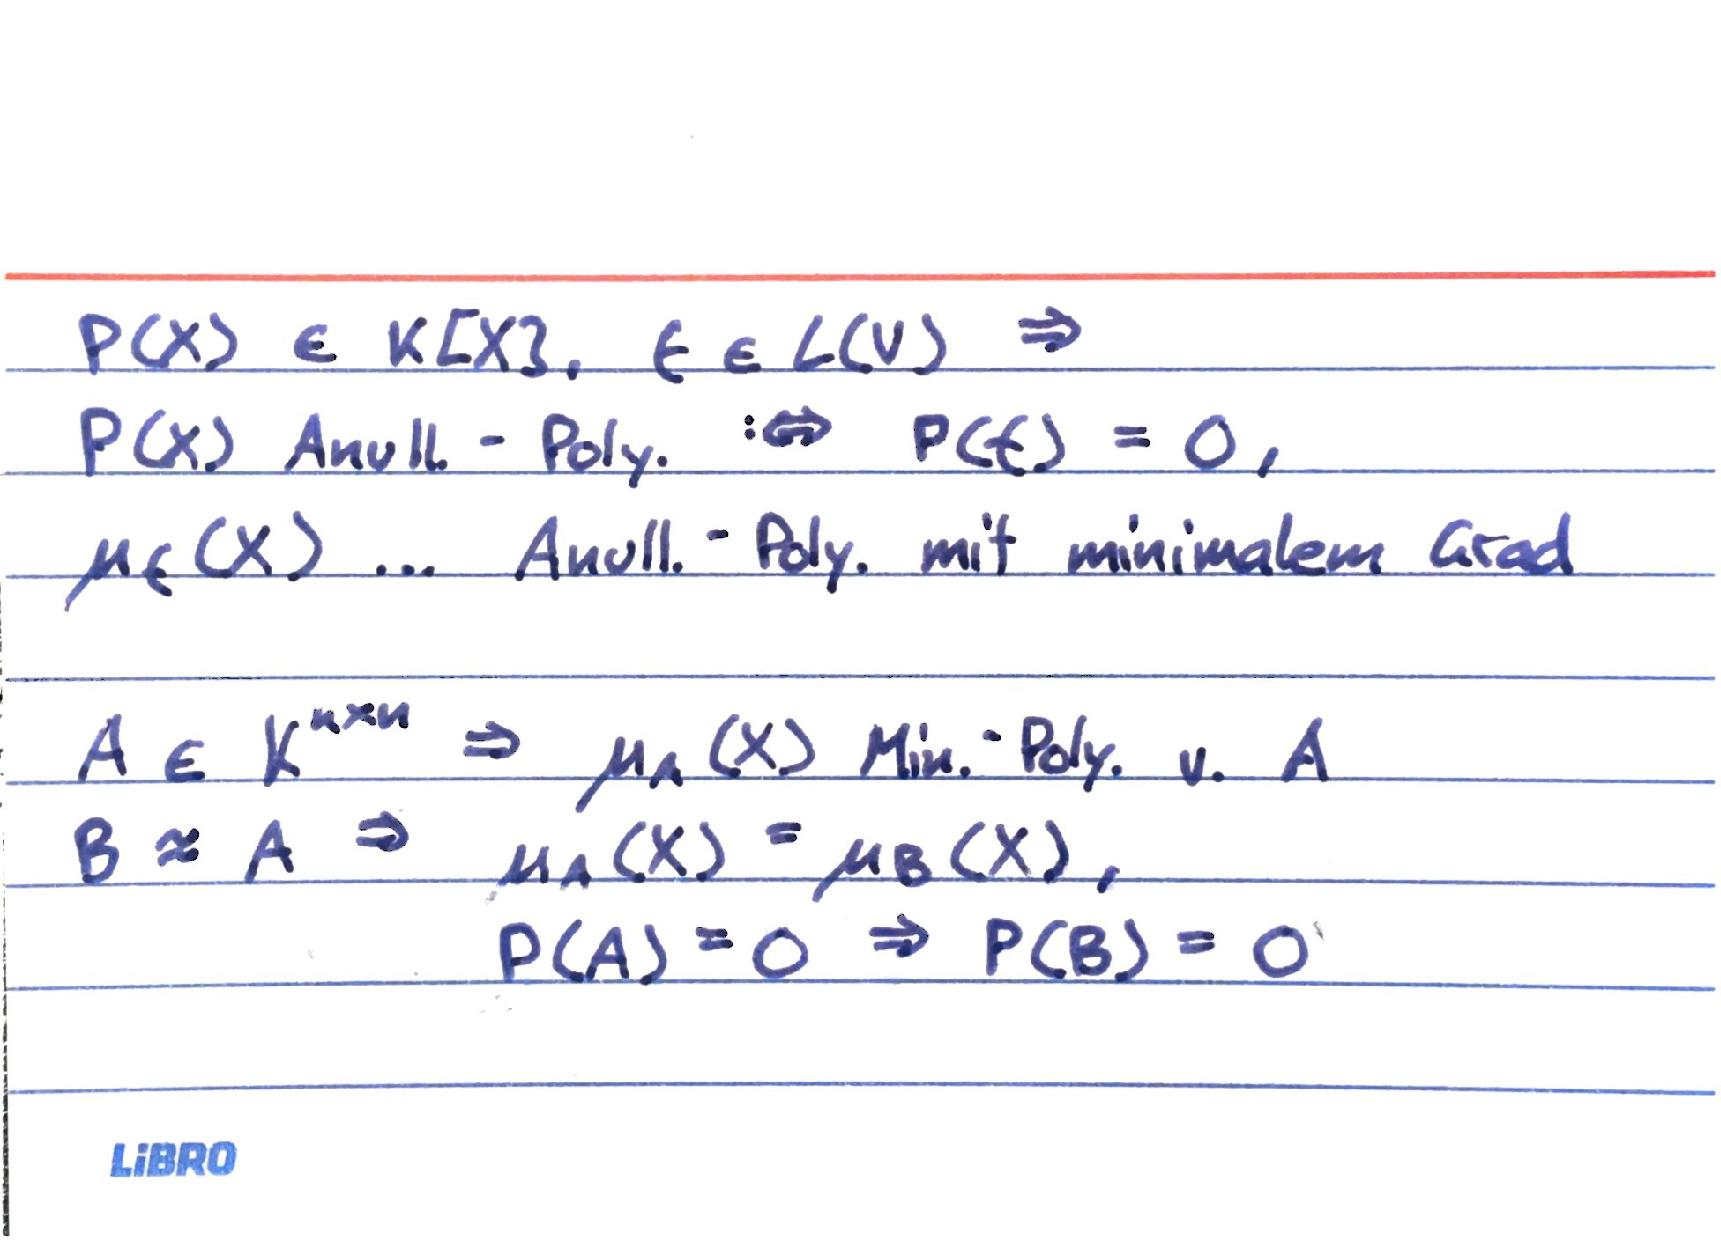 P(X) ∈ K[X], f ∈ L(V) ⇒
P(X) Anull.-Poly. :⇔ P(f) = 0,
μf(X) ... Anull.-Poly. mit minimalem Grad
A ∈ K^n×n ⇒ μA(X) Min.-Poly. v. A
B ≈ A ⇒ μA(X) = μB(X),
P(A) = 0 ⇒ P(B) = 0
LiBRO